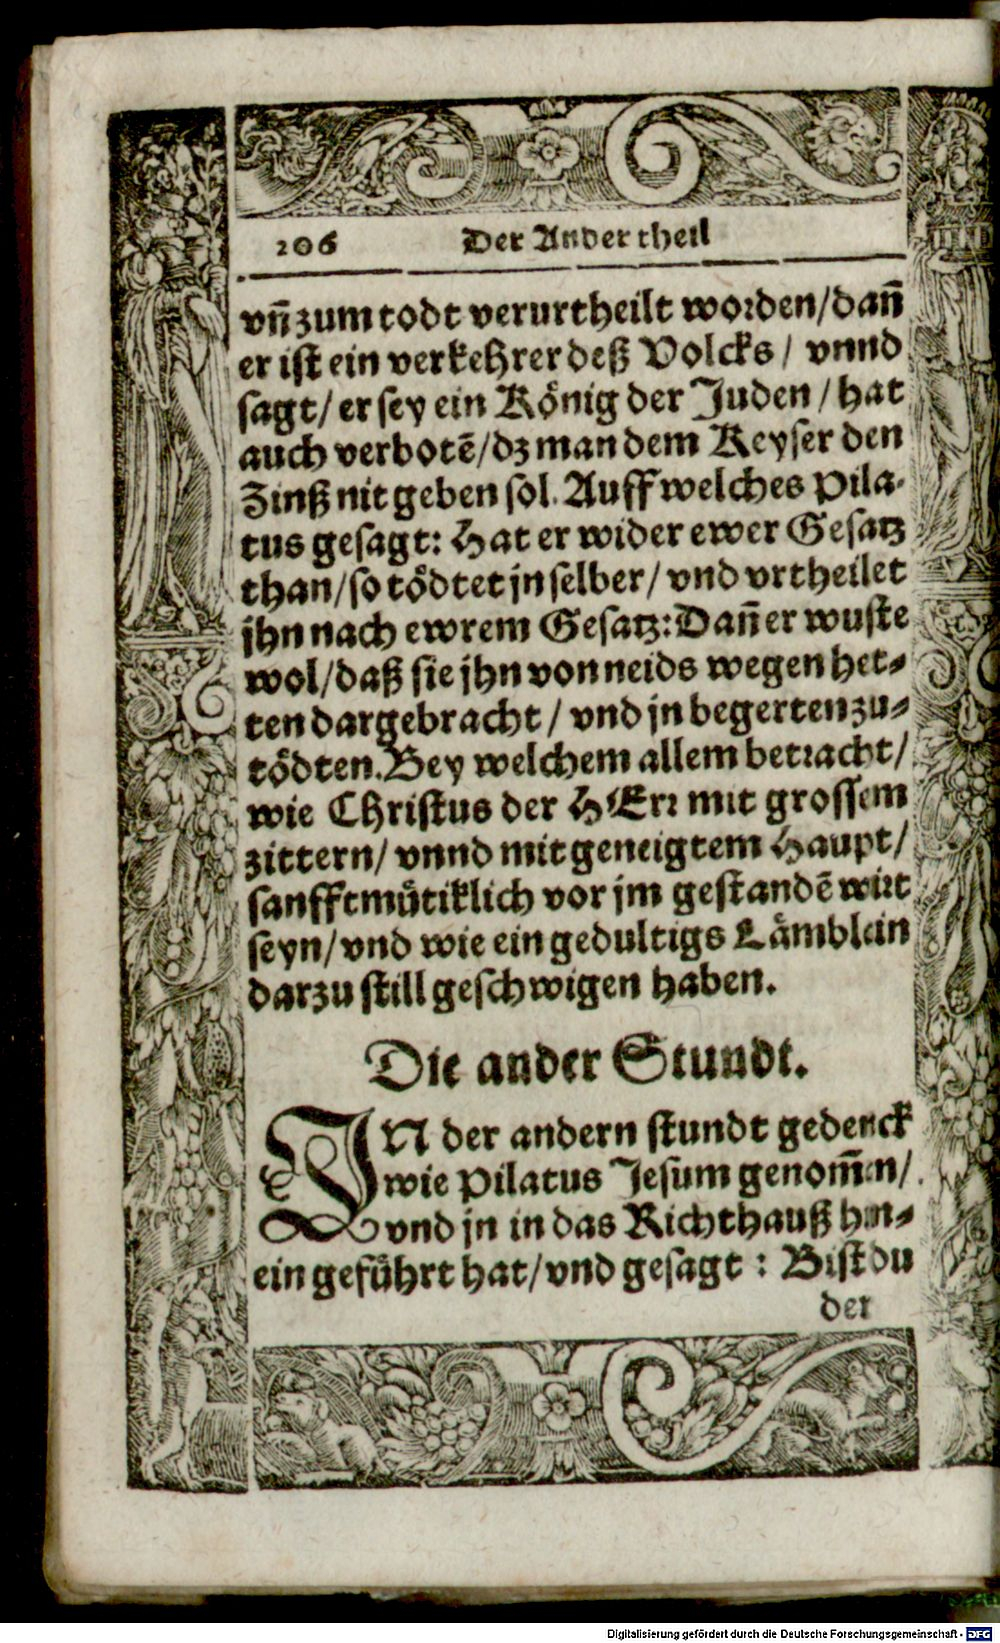 206 Der Ander theil
vn̄ zum todt verurtheilt worden/dañ
er ist ein verkehrer deß Volcks / vnnd
sagt/ er sey ein König der Juden / hat
auch verbotē/dz man dem Keyser den
Zinß nit geben sol. Auff welches Pila-
tus gesagt: Hat er wider ewer Gesatz
than/so tödtet jn selber/ vnd vrtheilet
jhn nach ewrem Gesatz: Dañ er wuste
wol/daß sie jhn von neids wegen het-
ten dargebracht / vnd jn begerten zu-
tödten. Bey welchem allem betracht/
wie Christus der HErr mit grossem
zittern/ vnnd mit geneigtem Haupt/
sanfftmütiklich vor jm gestandē wirt
seyn/vnd wie ein gedultigs Lämblein
darzu still geschwigen haben.
Die ander Stundt.
IN der andern stundt gedenck
wie Pilatus Jesum genom̄en/
vnd jn in das Richthauß hin-
ein geführt hat/vnd gesagt : Bist du
der
Digitalisierung gefördert durch die Deutsche Forschungsgemeinschaft - DFG